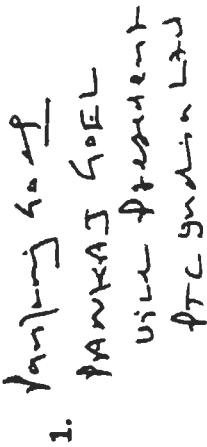 1. Pankaj Goel
PANKAJ GOEL
Vice President
PTC India Ltd